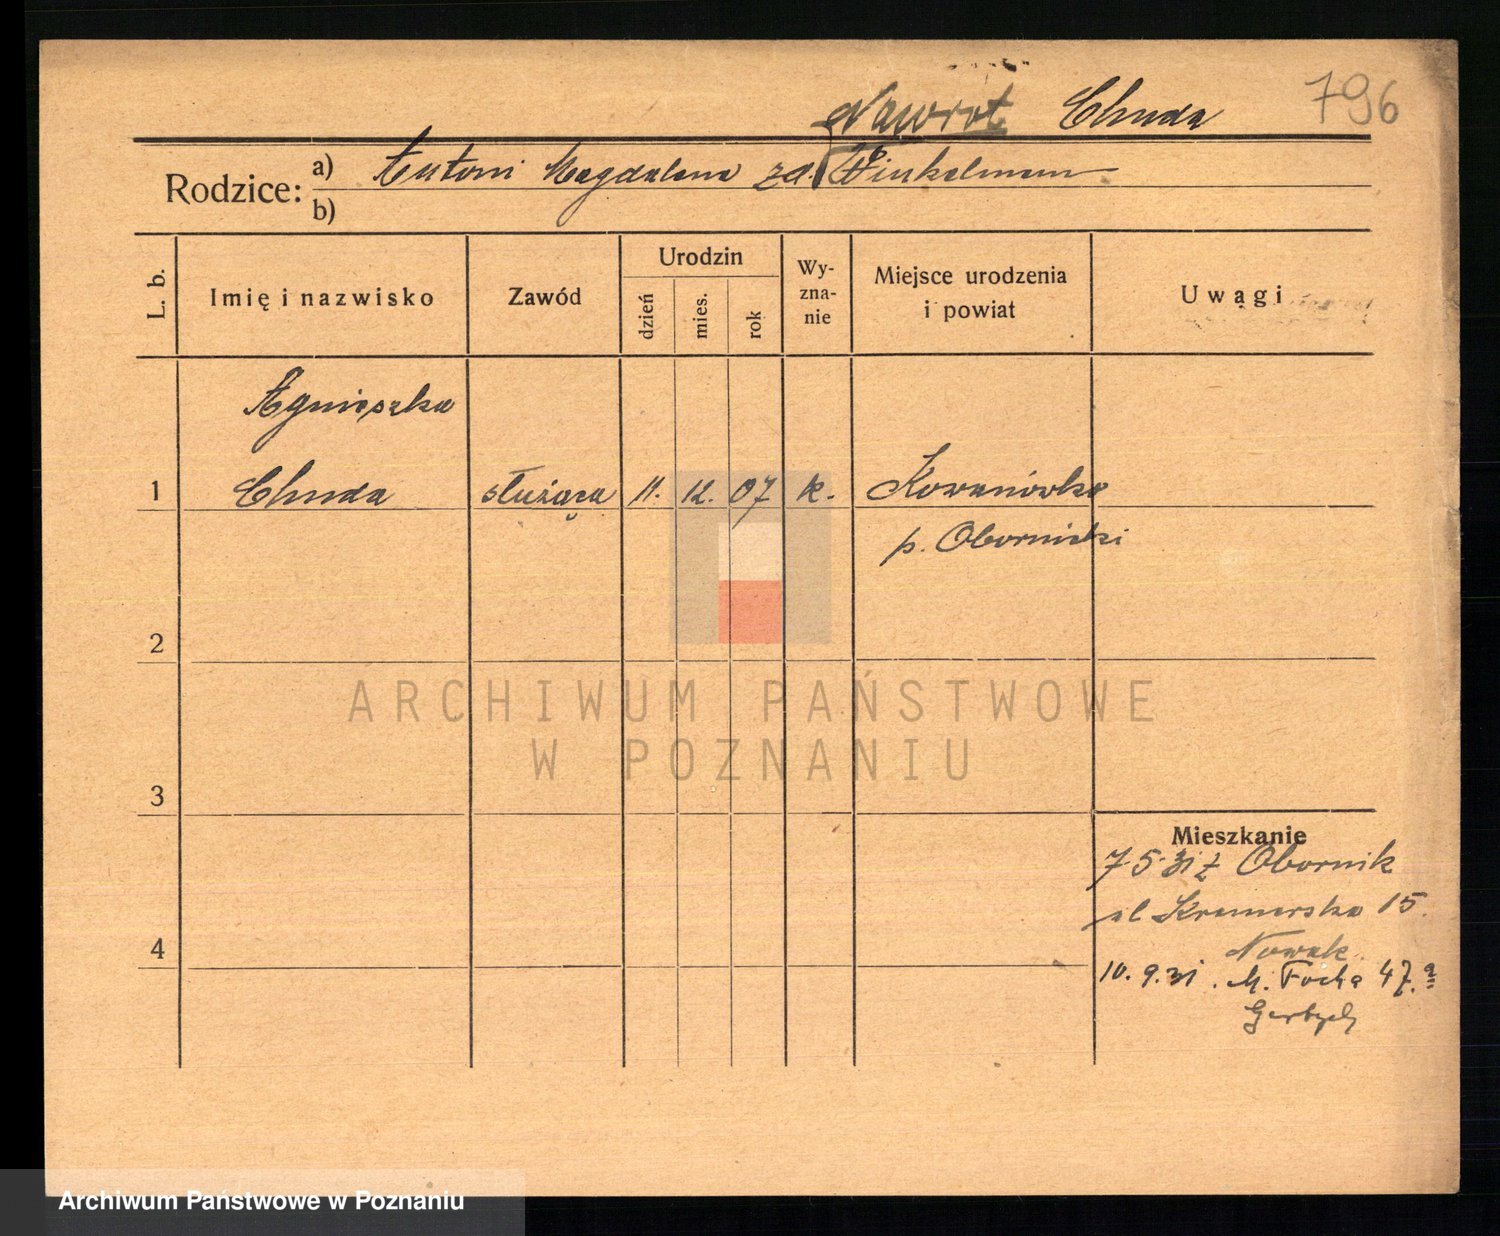 796
Nawrot Chuda
Rodzice: a) Antoni Magdalena zd. Winkelmann
b)
L. b. Imię i nazwisko Zawód Urodzin dzień mies. rok Wyznanie Miejsce urodzenia i powiat Uwagi
Agnieszka
1 Chuda służąca 11. 12. 07 k. Kowanówko
p. Obornicki
2
ARCHIWUM PAŃSTWOWE
W POZNANIU
3
Mieszkanie
7·5·31 z Obornik
ul Kramarska 15.
Nowak.
4
10. 9. 31. M. Focha 47. a
Archiwum Państwowe w Poznaniu